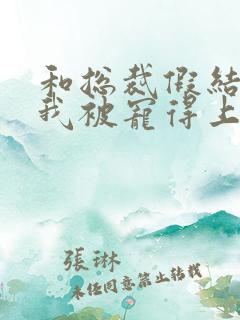 和总裁假结
我被宠得上
張琳
未经同意禁止转载